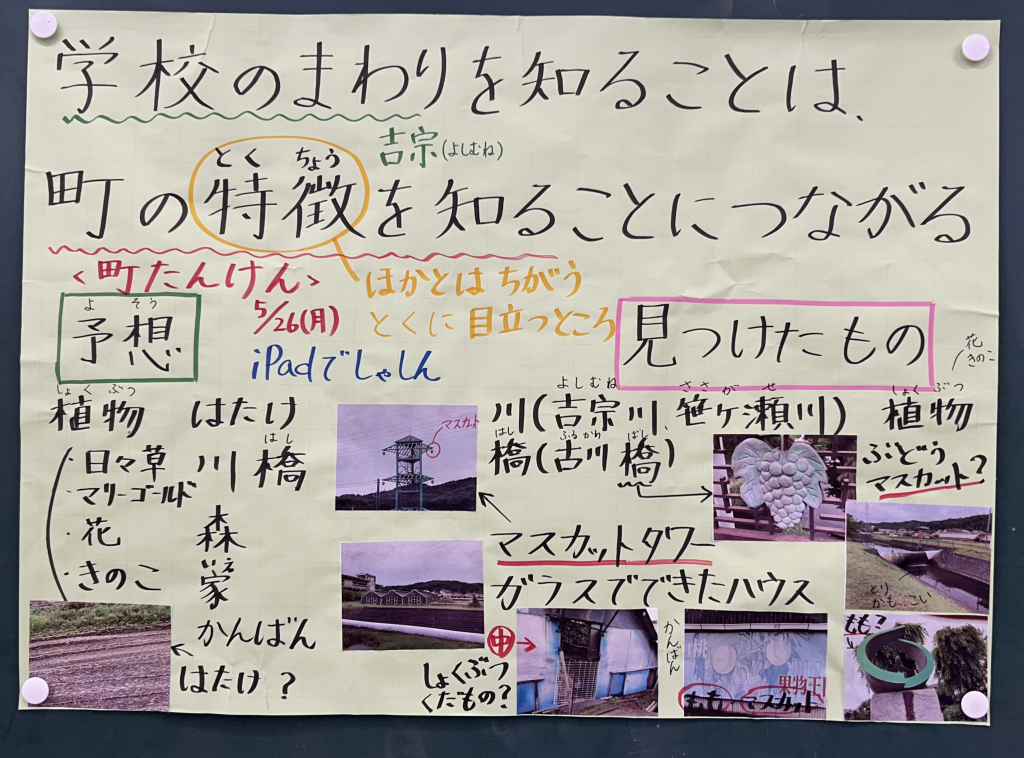 学校のまわりを知ることは、
吉宗(よしむね)
とくちょう
町の特徴を知ることにつながる
<町たんけん>
5/26(月)
iPadでしゃしん
ほかとはちがう
とくに目立つところ
よそう
予想
しょくぶつ
植物 はたけ
・日々草
・マリーゴールド
・花
・きのこ
はし
川 橋
もり
森
いえ
家
かんばん
はたけ?
マスカット
見つけたもの
花
きのこ
よしむね ささがせ
川(吉宗川、笹ヶ瀬川)
はし ふるかわ ばし
橋(古川橋)
しょくぶつ
植物
ぶどう
マスカット?
マスカットタワー
ガラスでできたハウス
とり
かも こい
中
しょくぶつ
くだもの?
かんばん
桃
果物王
もも マスカット
もも?